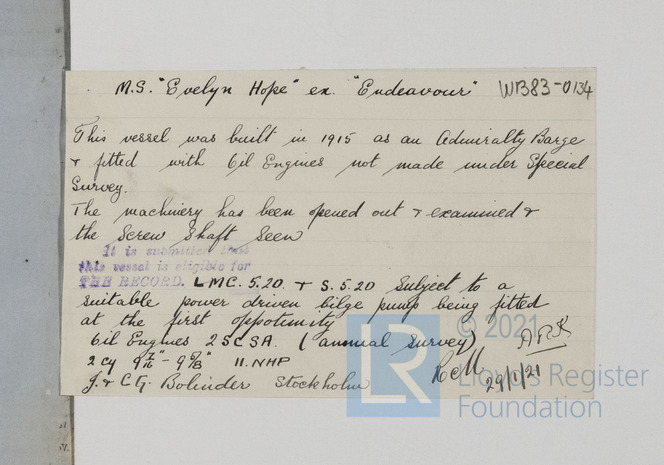 M.S. "Evelyn Hope" ex. "Endeavour" WB83-0134
This vessel was built in 1915 as an Admiralty Barge
& fitted with Oil Engines not made under Special
Survey.
The machinery has been opened out & examined &
the Screw Shaft Seen
It is submitted that
this vessel is eligible for
THE RECORD. LMC. 5.20. & S. 5.20 Subject to a
suitable power driven bilge pump being fitted
at the first oppotunity
Oil Engines 2SCSA. (annual survey)
2 cy 9 7/16" - 9 5/8" 11. NHP
J. & C.G. Bolinder Stockholm
29/1/21
© 2021
LR
Lloyd's Register
Foundation